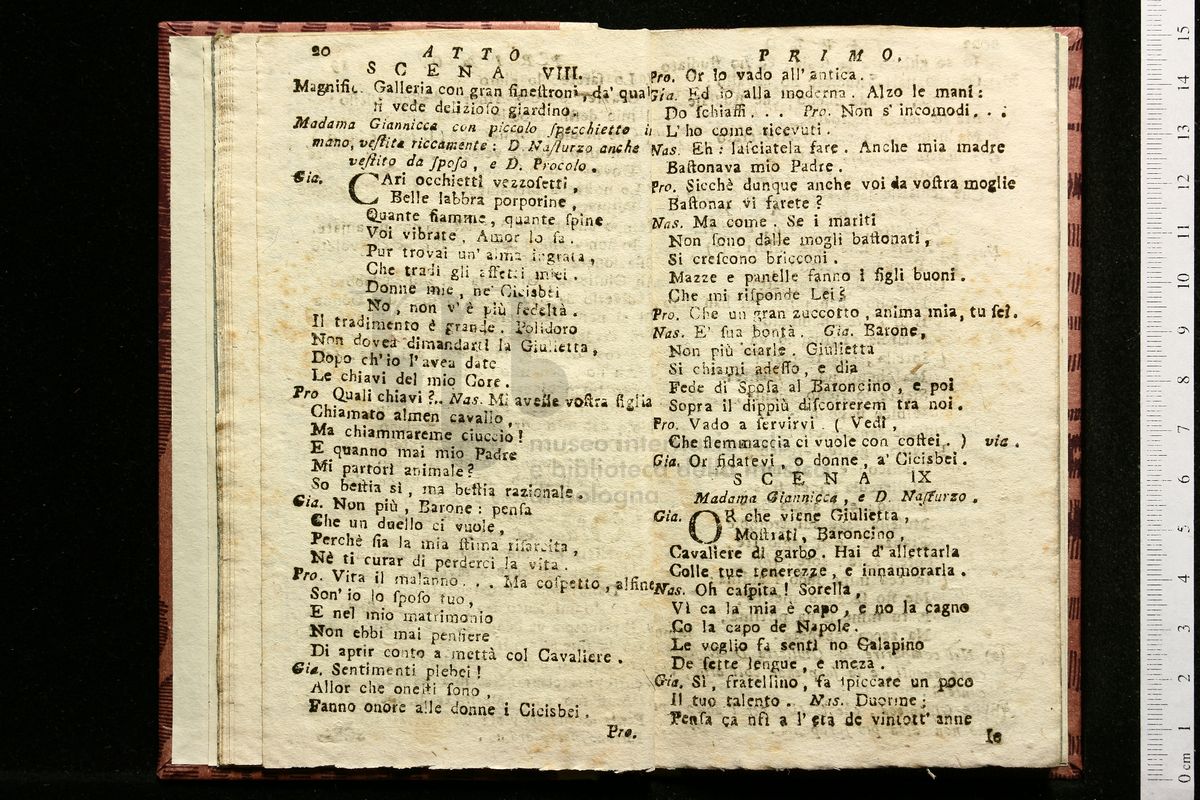 20
ATTO
SCENA VIII.
Magnific. Galleria con gran fineſtroni, da' qual
ſi vede delizioſo giardino.
Madama Giannicca con piccolo ſpecchietto in
mano, veſtita riccamente: D. Naſturzo anche
veſtito da ſpoſo, e D. Procolo.
Gia. CAri occhietti vezzoſetti,
Belle labbra porporine,
Quante fiamme, quante ſpine
Voi vibrate, Amor lo ſa.
Pur trovai un' alma ingrata,
Che tradì gli affetti miei.
Donne mie, ne' Cicisbei
No, non v'è più fedeltà.
Il tradimento è grande. Polidoro
Non dovea dimandarti la Giulietta,
Dopo ch'io l'avea date
Le chiavi del mio Core.
Pro Quali chiavi?.. Nas. Mi aveſſe voſtra figlia
Chiamato almen cavallo,
Ma chiammareme ciuccio!
E quanno mai mio Padre
Mi partorì animale?
So beſtia sì, ma beſtia razionale.
Gia. Non più, Barone: penſa
Che un duello ci vuole,
Perchè ſia la mia ſtima riſarcita,
Nè ti curar di perderci la vita.
Pro. Vita il malanno... Ma coſpetto, alfine
Son' io lo ſpoſo tuo,
E nel mio matrimonio
Non ebbi mai penſiere
Di aprir conto a mettà col Cavaliere.
Gia. Sentimenti plebei!
Allor che oneſti ſono,
Fanno onore alle donne i Cicisbei.
Pro.
PRIMO.
Pro. Or lo vado all' antica.
Gia. Ed io alla moderna. Alzo le mani:
Do ſchiaffi... Pro. Non s' incomodi...
L' ho come ricevuti.
Nas. Eh: laſciatela fare. Anche mia madre
Baſtonava mio Padre.
Pro. Sicchè dunque anche voi da voſtra moglie
Baſtonar vi farete?
Nas. Ma come. Se i mariti
Non ſono dalle mogli baſtonati,
Si creſcono bricconi.
Mazze e panelle fanno i figli buoni.
Che mi riſponde Lei?
Pro. Che un gran zuccotto, anima mia, tu ſei.
Nas. E' ſua bontà. Gia. Barone,
Non più ciarle. Giulietta
Si chiami adeſſo, e dia
Fede di Spoſa al Baroncino, e poi
Sopra il dippiù diſcorrerem tra noi.
Pro. Vado a ſervirvi. (Vedi,
Che flemmaccia ci vuole con coſtei.) via.
Gia. Or fidatevi, o donne, a' Cicisbei.
SCENA IX
Madama Giannicca, e D. Naſturzo.
Gia. OR che viene Giulietta,
Moſtrati, Baroncino,
Cavaliere di garbo. Hai d' allettarla
Colle tue tenerezze, e innamorarla.
Nas. Oh caſpita! Sorella,
Vì ca la mia è capo, e no la cagno
Co la capo de Napole.
Le voglio fa ſentì no Galapino
De ſette lengue, e meza.
Gia. Sì, fratellino, fa ſpiccare un poco
Il tuo talento. Nas. Duorme;
Penſa ca nfi a l' età de vintott' anne
Ie
museo inter
e biblioteca della musica
di bologna
0 cm 1 2 3 4 5 6 7 8 9 10 11 12 13 14 15